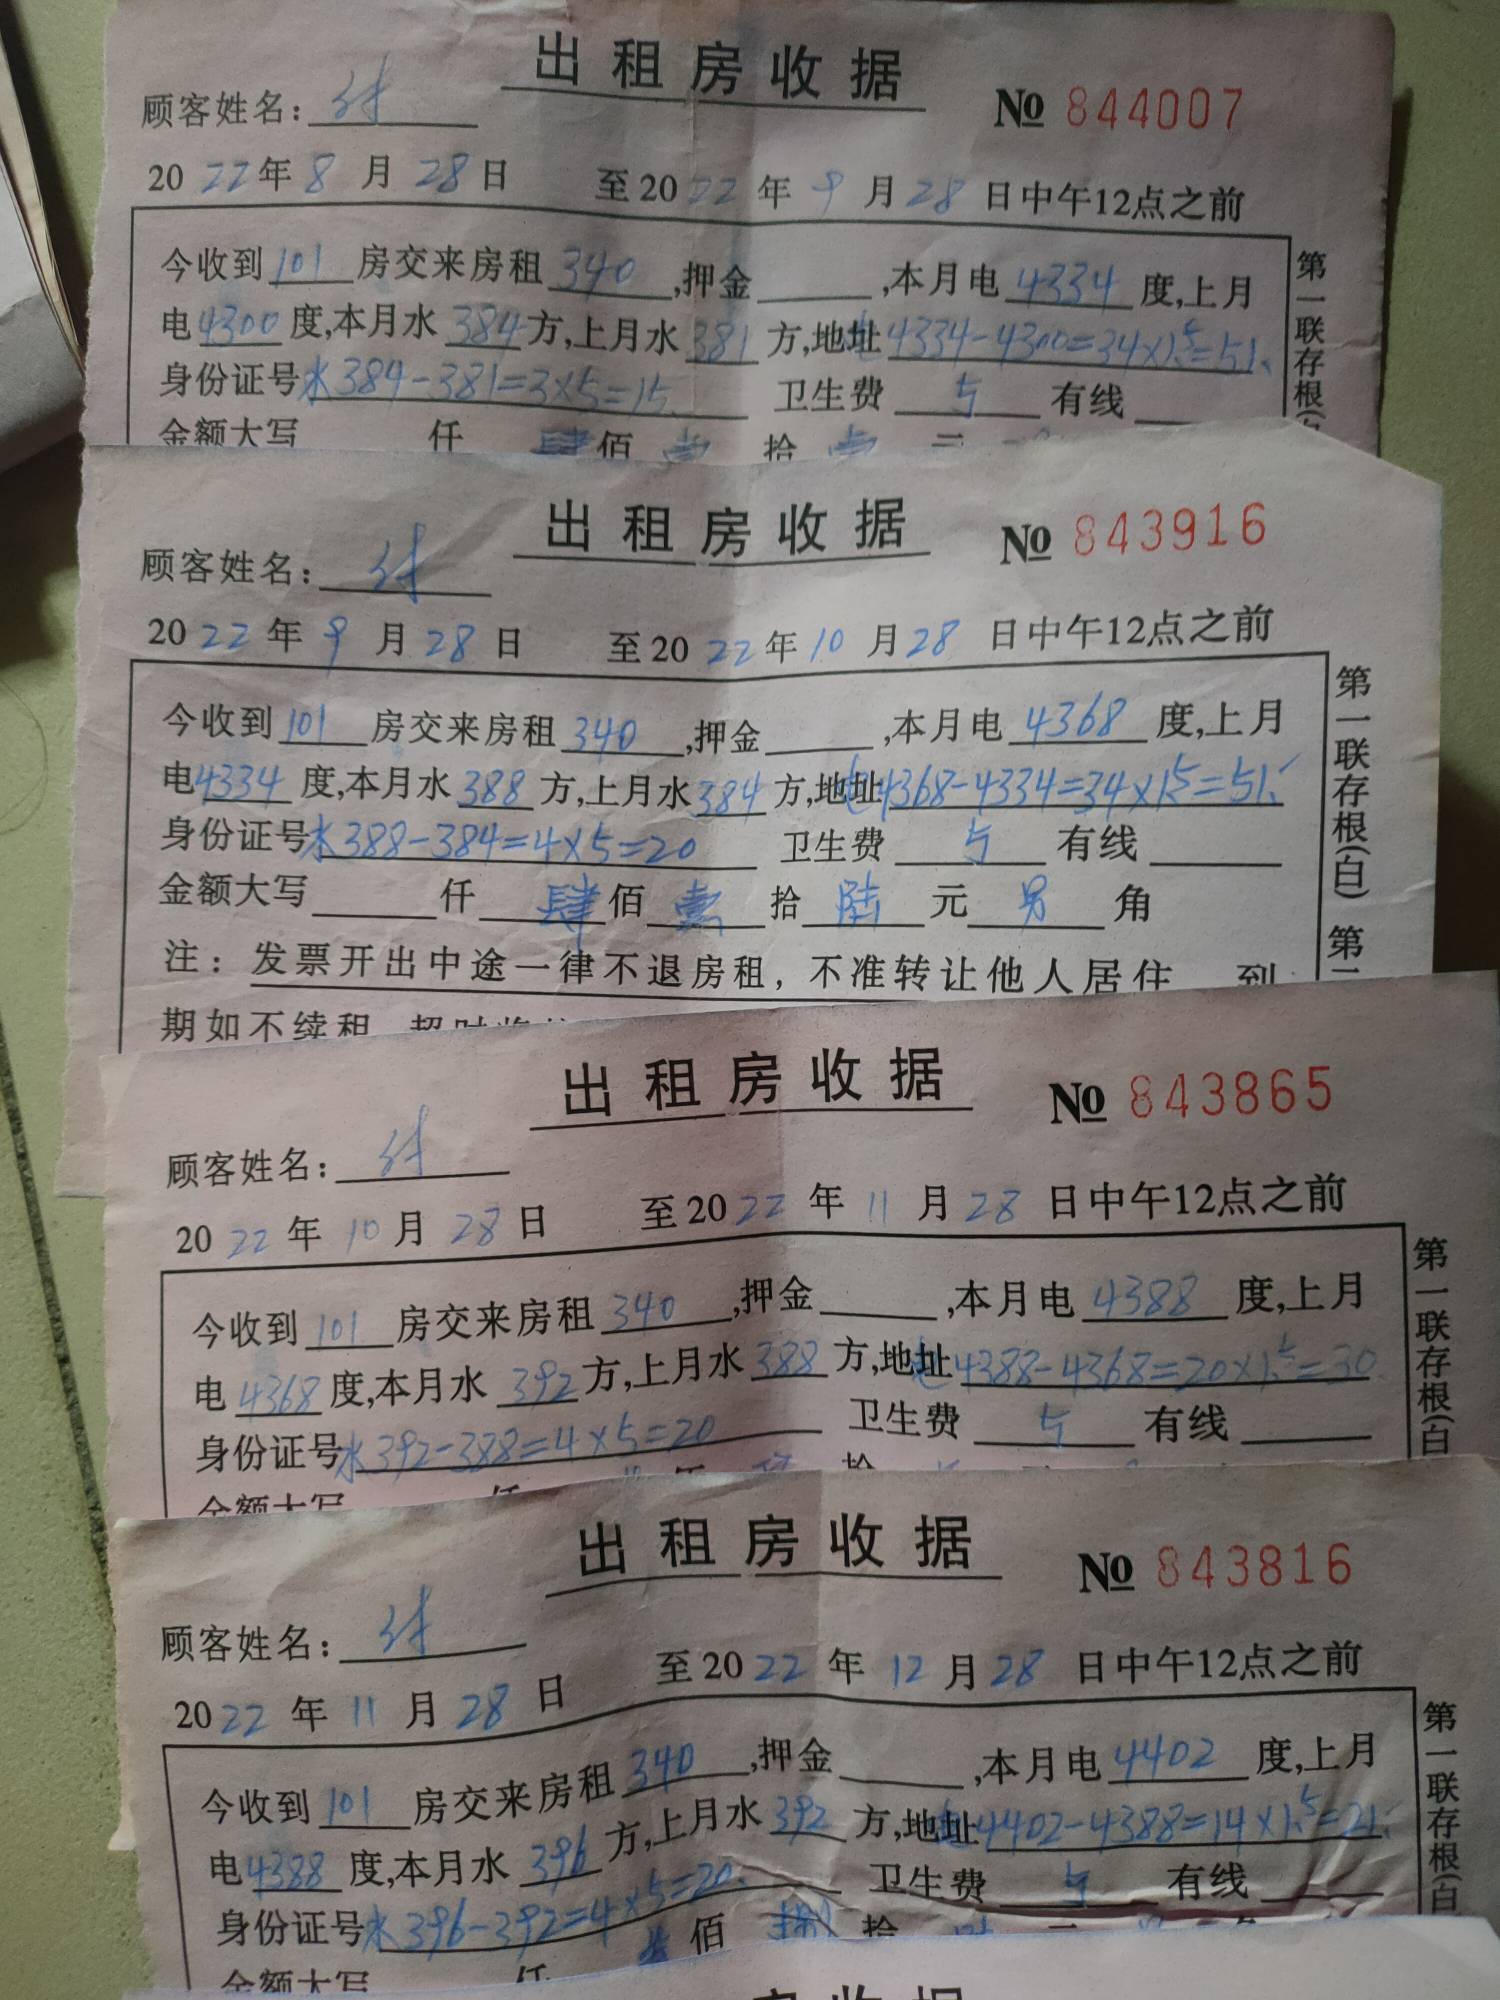 出租房收据
№ 844007
顾客姓名：付
2022年8月28日 至2022年9月28日中午12点之前
今收到101房交来房租340,押金 ,本月电4334度,上月
电4300度,本月水384方,上月水381方,地址电4334-4300=34×1.5=51.
身份证号水384-381=3×5=15. 卫生费5有线
金额大写 仟肆佰壹拾壹
第一联存根(白
出租房收据
№ 843916
顾客姓名：付
2022年9月28日 至2022年10月28日中午12点之前
今收到101房交来房租340,押金 ,本月电4368度,上月
电4334度,本月水388方,上月水384方,地址电4368-4334=34×1.5=51.
身份证号水388-384=4×5=20 卫生费5有线
金额大写 仟肆佰壹拾陆元另角
注：发票开出中途一律不退房租，不准转让他人居住 到
期如不续租
第一联存根(白) 第二
出租房收据
№ 843865
顾客姓名：付
2022年10月28日 至2022年11月28日中午12点之前
今收到101房交来房租340,押金 ,本月电4388度,上月
电4368度,本月水392方,上月水388方,地址电4388-4368=20×1.5=30.
身份证号水392-388=4×5=20 卫生费5有线
金额大写 仟
第一联存根(白
出租房收据
№ 843816
顾客姓名：付
2022年11月28日 至2022年12月28日中午12点之前
今收到101房交来房租340,押金 ,本月电4402度,上月
电4388度,本月水396方,上月水392方,地址电4402-4388=14×1.5=21.
身份证号水396-392=4×5=20. 卫生费5有线
金额大写 仟 佰捌拾
第一联存根(白
出租房收据